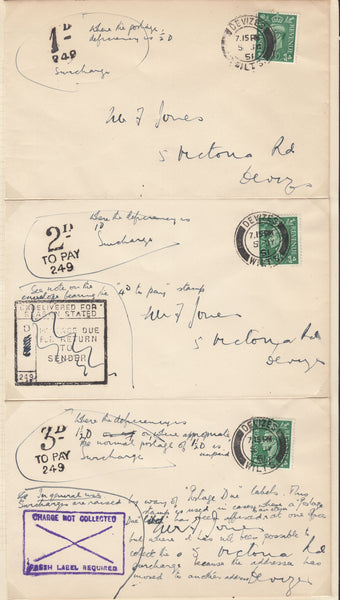 1D
249
Surcharge
Where the postage
deficiency is ½D
DEVIZES
7.15 PM
51
WILTS
Mr F Jones
5 Victoria Rd
Devizes
2D
TO PAY
249
Where the deficiency is
1D
Surcharge
DEVIZES
7.15 PM
51
WILTS
See note on the
envelope bearing the "4D to pay" stamp
UNDELIVERED FOR
REASON STATED
POSTAGE DUE
FOR RETURN
TO
SENDER
249
Mr F Jones
5 Victoria Rd
Devizes
3D
TO PAY
249
Where the deficiency is
1½D or where appropriate
the normal postage of 1½D is
unpaid
Surcharge
DEVIZES
7.15 PM
51
WILTS
In general
Surcharges are raised by way of "Postage Due" labels. This
stamp is used in cases where a Postage
Due label has been affixed at one office
but where it has not been possible to
collect the
surcharge because the addressee has
moved to another address
CHARGE NOT COLLECTED
FRESH LABEL REQUIRED
Mr F Jones
5 Victoria Rd
Devizes